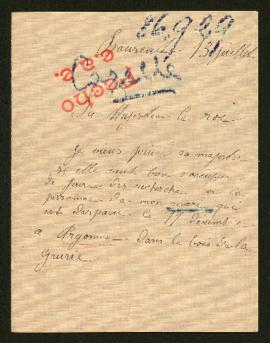 86.939
España
Hecho
Sa Majestée le roi
Je vous prie sa majestée
si elle veut bien s'occuper
de faire des recherche sur la
personne de mon mari qui
est disparu le 17 décembre
a Argonne dans le bois de la
Grurie